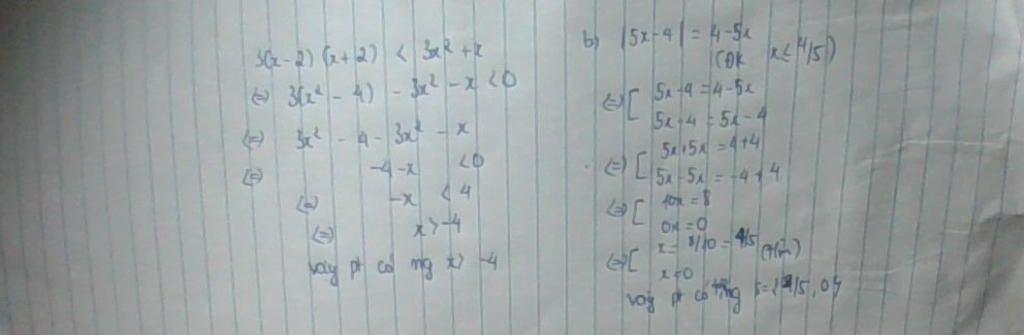 3(x-2)(x+2) < 3x² + x
(=) 3(x² - 4) - 3x² - x < 0
(=) 3x² - 4 - 3x² - x
(=) -4 - x < 0
(=) -x < 4
(=) x > -4
vậy pt có ng x > -4
b) |5x-4| = 4-5x
(ĐK x ≤ 4/5)
(=) [ 5x-4 = 4-5x
5x-4 = 5x-4
(=) [ 5x+5x = 4+4
5x-5x = -4+4
(=) [ 10x = 8
0x = 0
(=) [ x = 8/10 = 4/5
x = 0
vậy pt có ng S = {4/5, 0}